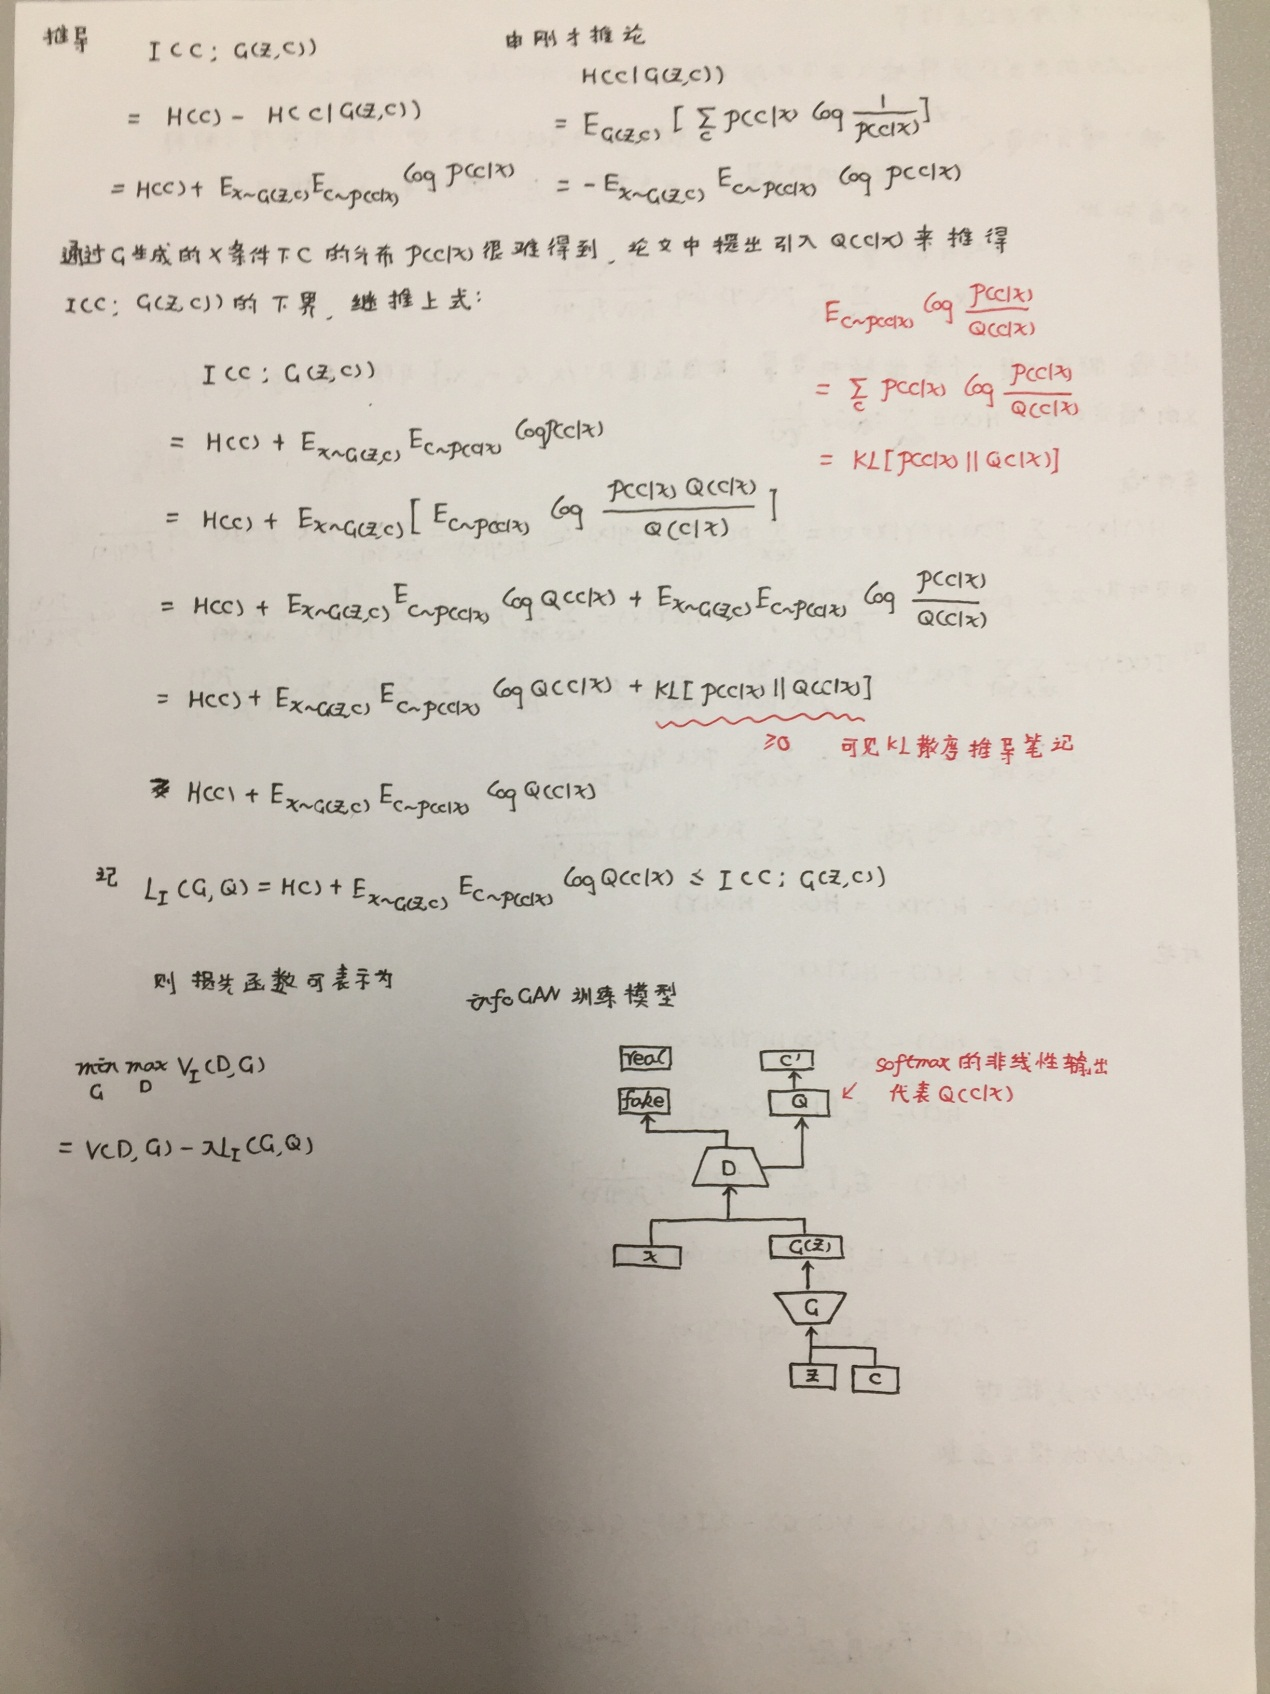 推导 I(C; G(Z,C))
= H(C) - H(C|G(Z,C))
= H(C) + E_{x~G(Z,C)} E_{C~P(C|x)} log P(C|x)
由刚才推论
H(C|G(Z,C))
= E_{G(Z,C)} [ Σ_C P(C|x) log 1/P(C|x) ]
= - E_{x~G(Z,C)} E_{C~P(C|x)} log P(C|x)
通过G生成的X条件下C的分布P(C|x)很难得到,论文中提出引入Q(C|x)来推得
I(C; G(Z,C))的下界,继推上式:
I(C; G(Z,C))
= H(C) + E_{x~G(Z,C)} E_{C~P(C|x)} log P(C|x)
= H(C) + E_{x~G(Z,C)} [ E_{C~P(C|x)} log P(C|x) Q(C|x) / Q(C|x) ]
E_{C~P(C|x)} log P(C|x) / Q(C|x)
= Σ_C P(C|x) log P(C|x) / Q(C|x)
= KL[P(C|x) || Q(C|x)]
= H(C) + E_{x~G(Z,C)} E_{C~P(C|x)} log Q(C|x) + E_{x~G(Z,C)} E_{C~P(C|x)} log P(C|x) / Q(C|x)
= H(C) + E_{x~G(Z,C)} E_{C~P(C|x)} log Q(C|x) + KL[P(C|x) || Q(C|x)]
≥0 可见KL散度推导笔记
≥ H(C) + E_{x~G(Z,C)} E_{C~P(C|x)} log Q(C|x)
记 L_I(G,Q) = H(C) + E_{x~G(Z,C)} E_{C~P(C|x)} log Q(C|x) ≤ I(C; G(Z,C))
则损失函数可表示为
min_G max_D V_I(D,G)
= V(D,G) - λL_I(G,Q)
infoGAN训练模型
real
C'
softmax的非线性输出
fake
Q
代表Q(C|x)
D
x
G(Z)
G
Z
C